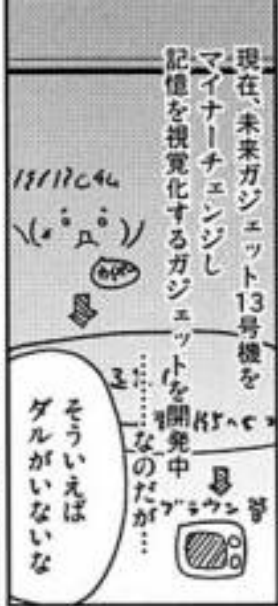 現在、未来ガジェット13号機を
マイナーチェンジし
記憶を視覚化するガジェットを開発中
………なのだが…
ブラウン管
そういえば
ダルがいないな